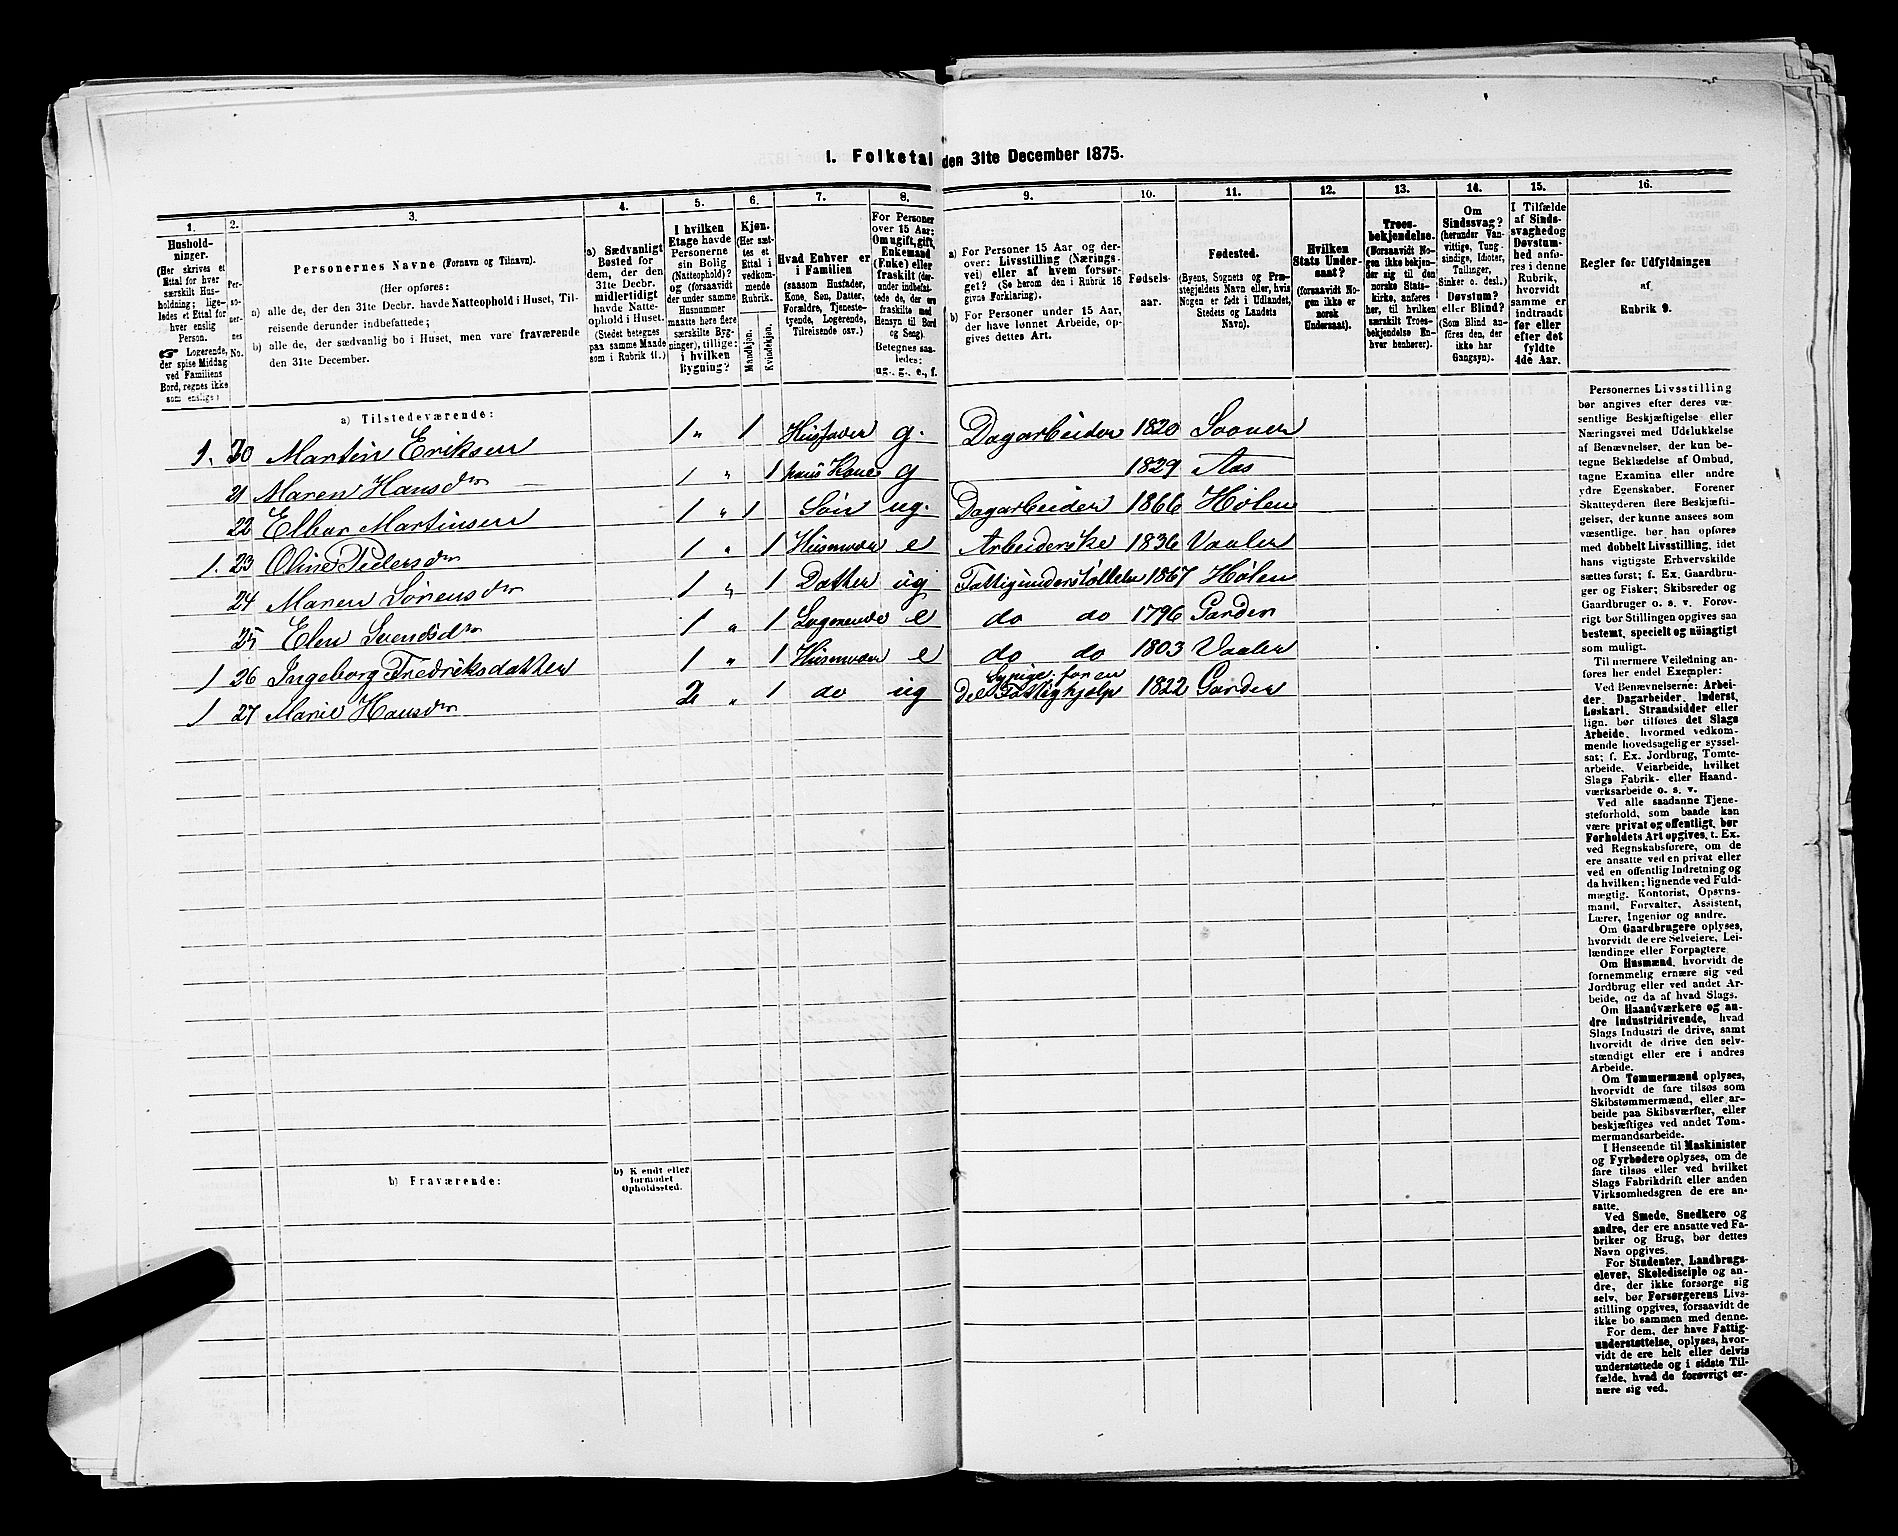 I. Folketal den 31te December 1875.
1.
Husholdninger.
(Her skrives et
Ettal for hver
særskilt Husholdning;
ligeledes et Ettal for
hver enslig
Person.
☞ Logerende,
der spise Middag
ved Familiens
Bord, regnes ikke
som enslige.)
2.
Personernes
No.
3.
Personernes Navne (Fornavn og Tilnavn).
(Her opføres:
a) alle de, der den 31te Decbr. havde Natteophold i Huset, Tilreisende
derunder indbefattede;
b) alle de, der sædvanlig bo i Huset, men vare fraværende
den 31te December.
4.
a) Sædvanligt
Bosted for
dem, der den
31te Decbr.
midlertidigt
havde Natteophold
i Huset.
(Stedet betegnes
paa samme Maade
som i Rubrik 11.)
5.
I hvilken
Etage havde
Personerne
sin Bolig
(Natteophold)?
og (forsaavidt
der under samme
Husnummer
maatte høre flere
særskilte Bygninger),
tillige:
i hvilken
Bygning?
6.
Kjøn.
(Her sættes
et
Ettal i
vedkommende
Rubrik.)
Mandkjøn.
Kvindekjøn.
7.
Hvad Enhver er
i Familien
(saasom Husfader,
Kone, Søn, Datter,
Forældre, Tjenestetyende,
Logerende,
Tilreisende osv.)
8.
For Personer
over 15 Aar:
Om ugift, gift,
Enkemand
(Enke) eller
fraskilt (derunder
indbefattede
de, der ere
fraskilte med
Hensyn til Bord
og Seng).
Betegnes saaledes:
ug., g., e., f.
9.
a) For Personer 15 Aar og derover:
Livsstilling (Næringsvei)
eller af hvem forsørget?
(Se herom den i Rubrik 16
givne Forklaring).
b) For Personer under 15 Aar,
der have lønnet Arbeide, opgives
dettes Art.
10.
Fødselsaar.
11.
Fødested.
(Byens, Sognets og Præstegjeldets
Navn eller, hvis
Nogen er født i Udlandet,
Stedets og Landets
Navn).
12.
Hvilken
Stats Undersaat?
(forsaavidt Nogen
ikke er
norsk
Undersaat).
13.
Troesbekjendelse.
(Forsaavidt Nogen
ikke bekjender
sig til den
norske Statskirke,
anføres
her, til hvilken
særskilt Troesbekjendelse
Enhver
henhører).
14.
Om
Sindssvag?
(herunder Vanvittige,
Tungsindige,
Idioter,
Tullinger,
Sinker o. desl.)
Døvstum?
eller Blind?
(Som Blind anføres
den, der
ikke har
Gangsyn).
15.
I Tilfælde
af Sindssvaghed
og
Døvstumhed
anføres
i denne
Rubrik,
hvorvidt
samme er
indtraadt
før eller
efter det
fyldte
4de Aar.
16.
Regler for Udfyldningen
af
Rubrik 9.
a) Tilstedeværende:
1. 20 Martin Eriksen 1 " 1 Husfader g. Dagarbeider 1820 Sooner
21 Maren Hansdr — 1 " 1 hans Kone g 1829 Aas
22 Elbar Martinsen 1 " 1 Søn ug. Dagarbeider 1866 Hølen
1. 23 Oline Pedersdr 1 " 1 Husmoder e 1836 Vaaler
24 Maren Sørensdr 1 " 1 Datter ug Fattigunderstøttelse 1867 Hølen
25 Elen Svendsdr 1 " 1 Logerende e do do 1796 Garder
1 26 Ingeborg Fredriksdatter 1 " 1 Husmoder e do do 1803 Vaaler
1 27 Marie Hansdr 2 " 1 do ug Sypige for en Del Fattighjælp 1822 Garder
b) Fraværende:
b) Kjendt eller
formodet
Opholdssted.
Personernes Livsstilling
bør angives efter deres væsentlige
Beskjæftigelse eller
Næringsvei med Udelukkelse
af Benævnelser, der kun betegne
Beklædelse af Ombud,
tagne Examina eller andre
ydre Egenskaber. Forener
Skatteyderen flere Beskjæftigelser,
der kunne ansees som
væsentlige, bør han opføres
med dobbelt Livsstilling, idet
hans vigtigste Erhvervskilde
sættes først; f. Ex. Gaardbruger
og Fisker; Skibsreder og
Gaardbruger o. s. v. Forøvrigt
bør Stillingen opgives saa
bestemt, specielt og nøiagtigt
som muligt.
Til nærmere Veiledning anføres
her endel Exempler:
Ved Benævnelserne: Arbeider,
Dagarbeider, Inderst,
Løskarl, Strandsidder eller
lign. bør tilføies det Slags
Arbeide, hvormed vedkommende
hovedsagelig er sysselsat;
f. Ex. Jordbrug, Tomtearbeide,
Veiarbeide, hvilket
Slags Fabrik- eller Haandværksarbeide
o. s. v.
Ved alle saadanne Tjenesteforhold,
som baade kan
være privat og offentligt, bør
Forholdets Art opgives, t. Ex.
ved Regnskabsførere, om de
ere ansatte ved en privat eller
ved en offentlig Indretning og
da hvilken; lignende ved Fuldmægtig,
Kontorist, Opsynsmand,
Forvalter, Assistent,
Lærer, Ingeniør og andre.
Om Gaardbrugere oplyses,
hvorvidt de ere Selveiere, Leilændinge
eller Forpagtere.
Om Husmænd, hvorvidt de
fornemmelig ernære sig ved
Jordbrug eller ved andet Arbeide,
og da af hvad Slags.
Om Haandværkere og andre
Industridrivende, hvad
Slags Industri de drive, samt
hvorvidt de drive den selvstændigt
eller ere i andres
Arbeide.
Om Tømmermænd oplyses,
hvorvidt de fare tilsøs som
Skibstømmermænd, eller arbeide
paa Skibsværfter, eller
beskjæftiges ved andet Tømmermandsarbeide.
I Henseende til Maskinister
og Fyrbødere oplyses, om de
fare tilsøs eller ved hvilket
Slags Fabrikdrift eller anden
Virksomhedsgren de ere ansatte.
Ved Smede, Snedkere og
andre, der ere ansatte ved Fabriker
og Brug, bør dettes
Navn opgives.
For Studenter, Landbrugselever,
Skoledisciple og andre,
der ikke forsørge sig
selv, bør Forsørgerens Livsstilling
opgives, forsaavidt de
ikke bo sammen med denne.
For dem, der have Fattigunderstøttelse,
oplyses, hvorvidt
de ere helt eller delvis
understøttede og i sidste Tilfælde,
hvad de forøvrigt ernære
sig ved.